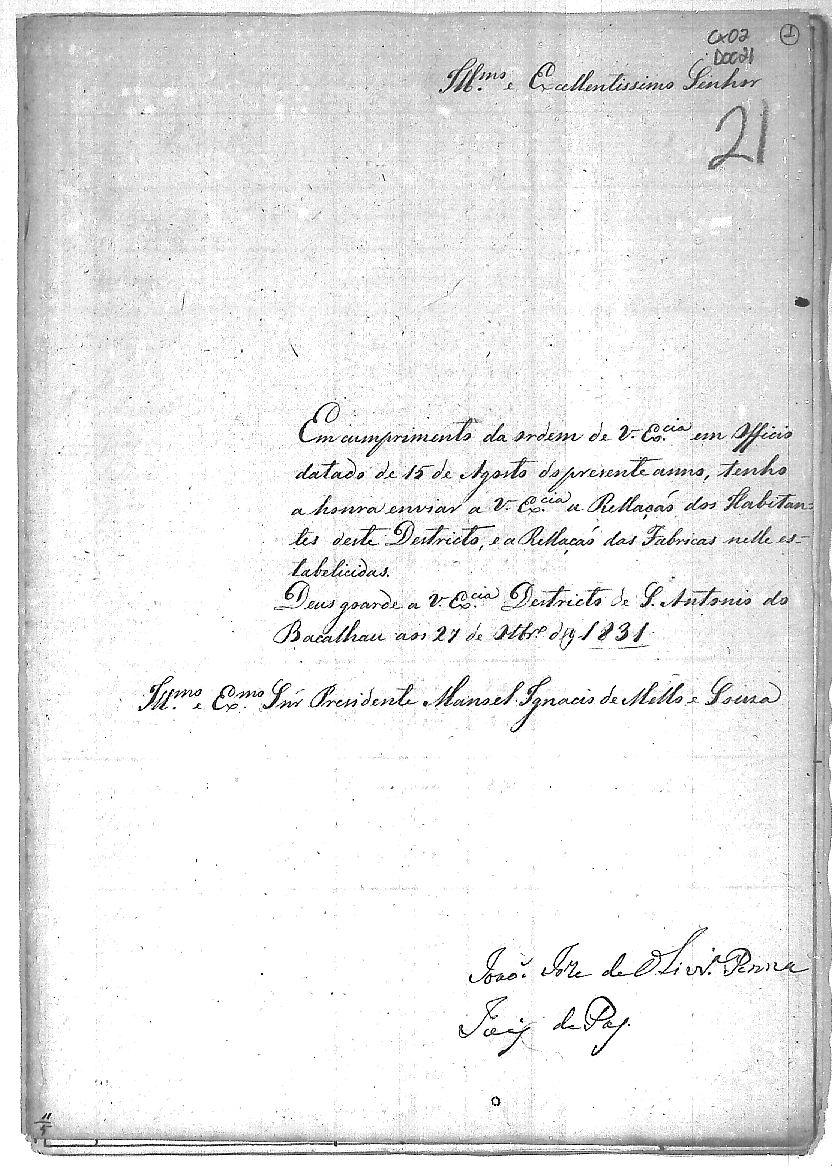 Cx02 1
Doc21
Ill.mo e Excellentissimo Senhor
21
Em cumprimento da ordem de V. Ex.cia em Officio
datado de 15 de Agosto do presente anno, tenho
a honra enviar a V. Ex.cia a Rellaçaõ dos Habitan=
tes deste Destricto, e a Rellaçaõ das Fabricas nelle es-
tabelicidas.
Deus goarde a V. Ex.cia Destricto de S. Antonio do
Bacalhau aos 27 de 7tbr.o de 1831
Ill.mo e Ex.mo Snr Presidente Manoel Ignacio de Mello e Souza
Joaõ Jze de Olivr.a Penna
Juiz de Paz.
11
5